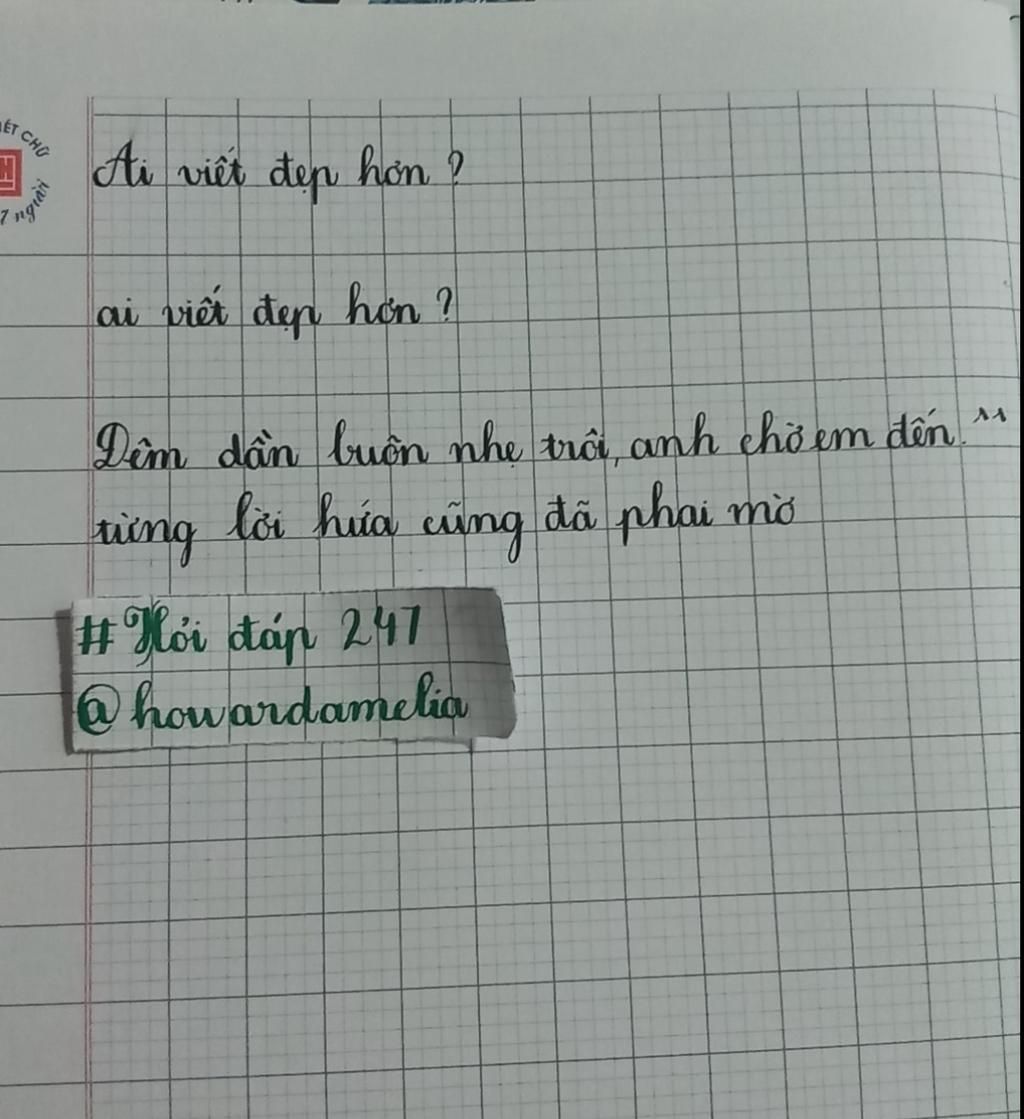 ẾT CHỮ
người
Ai viết đẹp hơn?
ai viết đẹp hơn?
Đêm dần buôn nhẹ trôi, anh chờ em đến.
từng lời hứa cũng đã phai mờ
#Hỏi đáp 247
@howardamelia